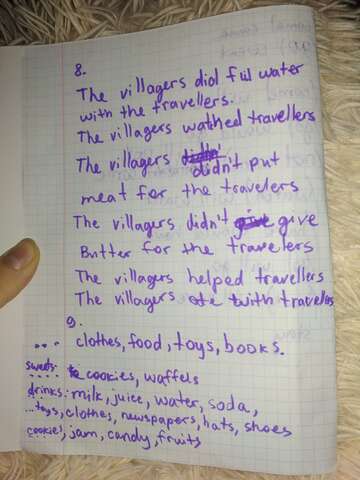 8.
The villagers did fill water
with the travellers.
The villagers wathed travellers
The villagers didn't put
meat for the travelers
The villagers didn't give
Butter for the travelers
The villagers helped travellers
The villagers ate with travelles
9.
... clothes, food, toys, books.
sweets: cookies, waffels
drinks: milk, juice, water, soda,
...toys, clothes, newspapers, hats, shoes
cookies, jam, candy, fruits